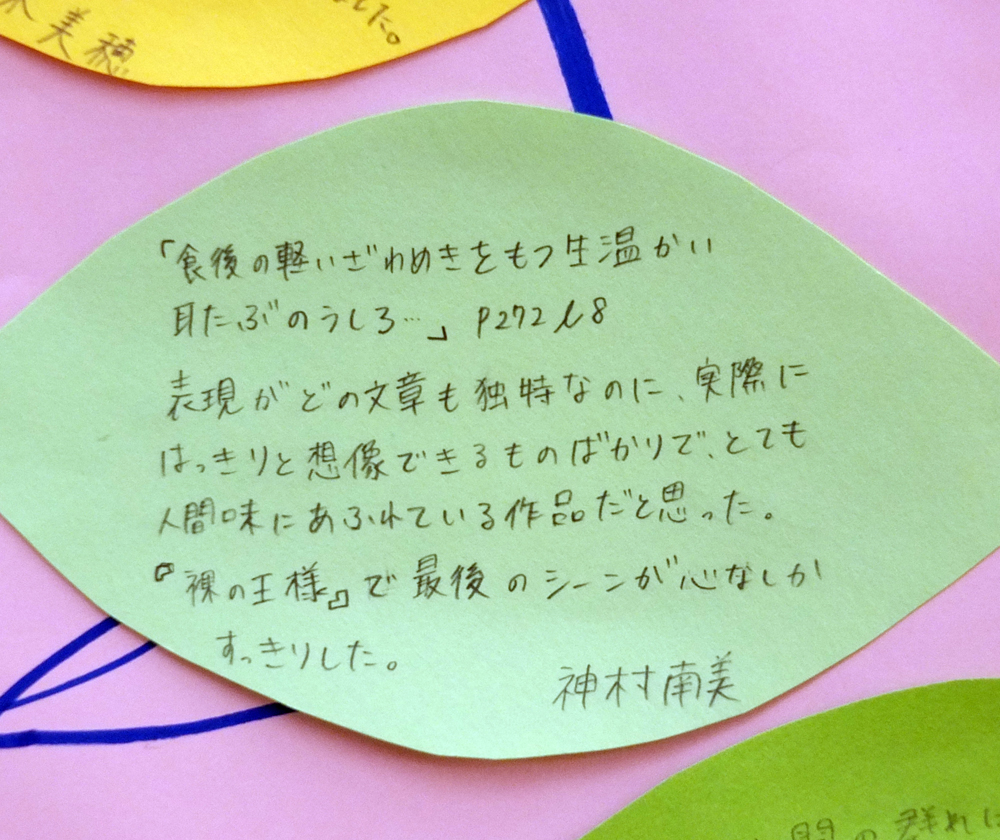 した。
美穂
「食後の軽いざわめきをもつ生温かい
耳たぶのうしろ…」 P272 l8
表現がどの文章も独特なのに、実際に
はっきりと想像できるものばかりで、とても
人間味にあふれている作品だと思った。
『裸の王様』で最後のシーンが心なしか
すっきりした。
神村南美
間の群れは